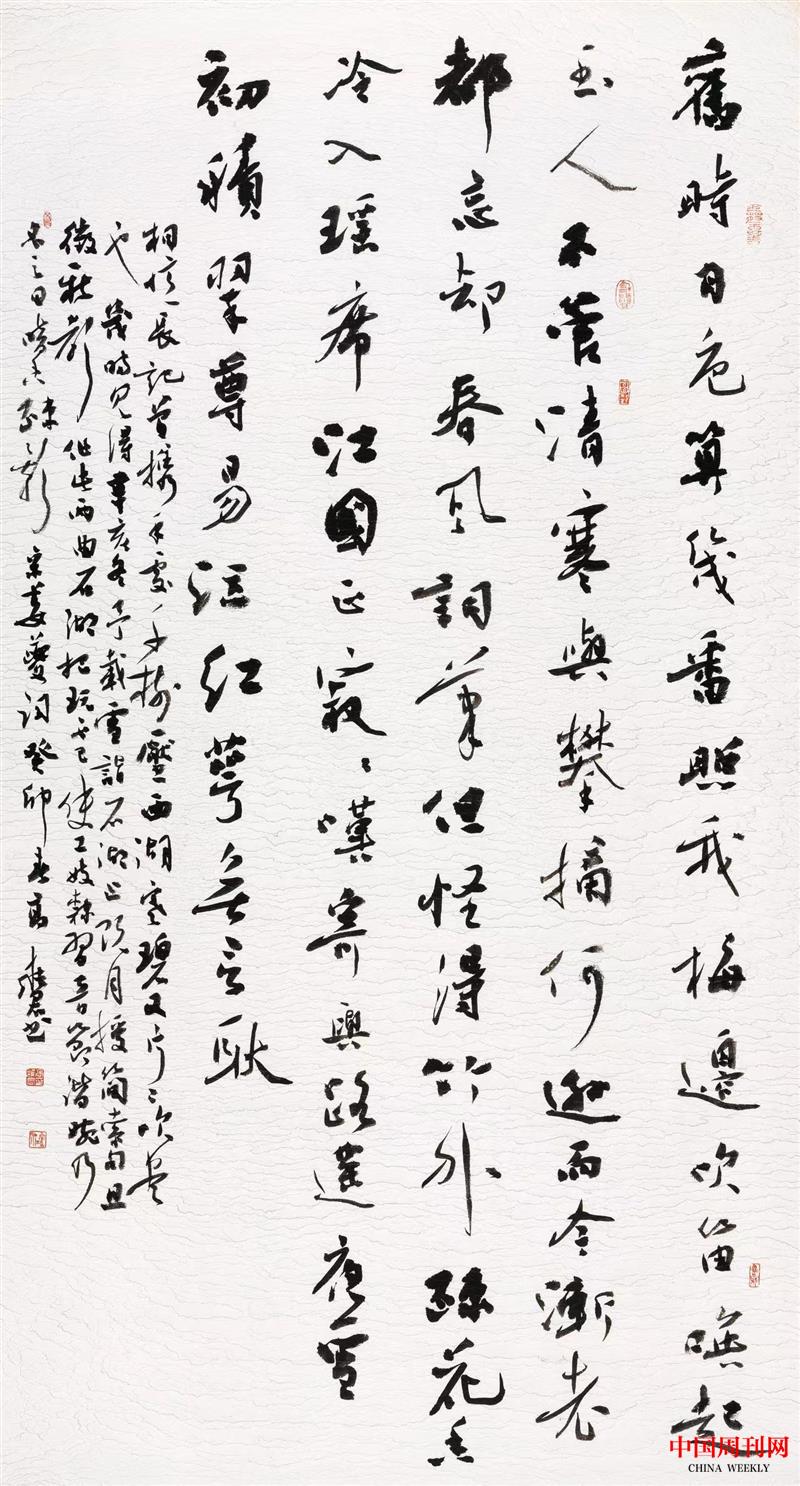 舊時月色算幾番照我梅邊吹笛喚起
玉人不管清寒與攀摘何遜而今漸老
都忘却春風詞筆但怪得竹外疎花香
冷入瑶席江國正寂〻嘆寄與路遥夜雪
初積翠尊易泣紅萼無言耿
相憶長記曾攜手處千樹壓西湖寒碧又片〻吹盡
也幾時見得辛亥冬予載雪詣石湖止既月授簡索句且
徵新聲作此兩曲石湖把玩不已使工妓隸習音節諧婉乃
名之曰暗香疎影宋姜夔詞癸卯春寫
中国周刊网
CHINA WEEKLY